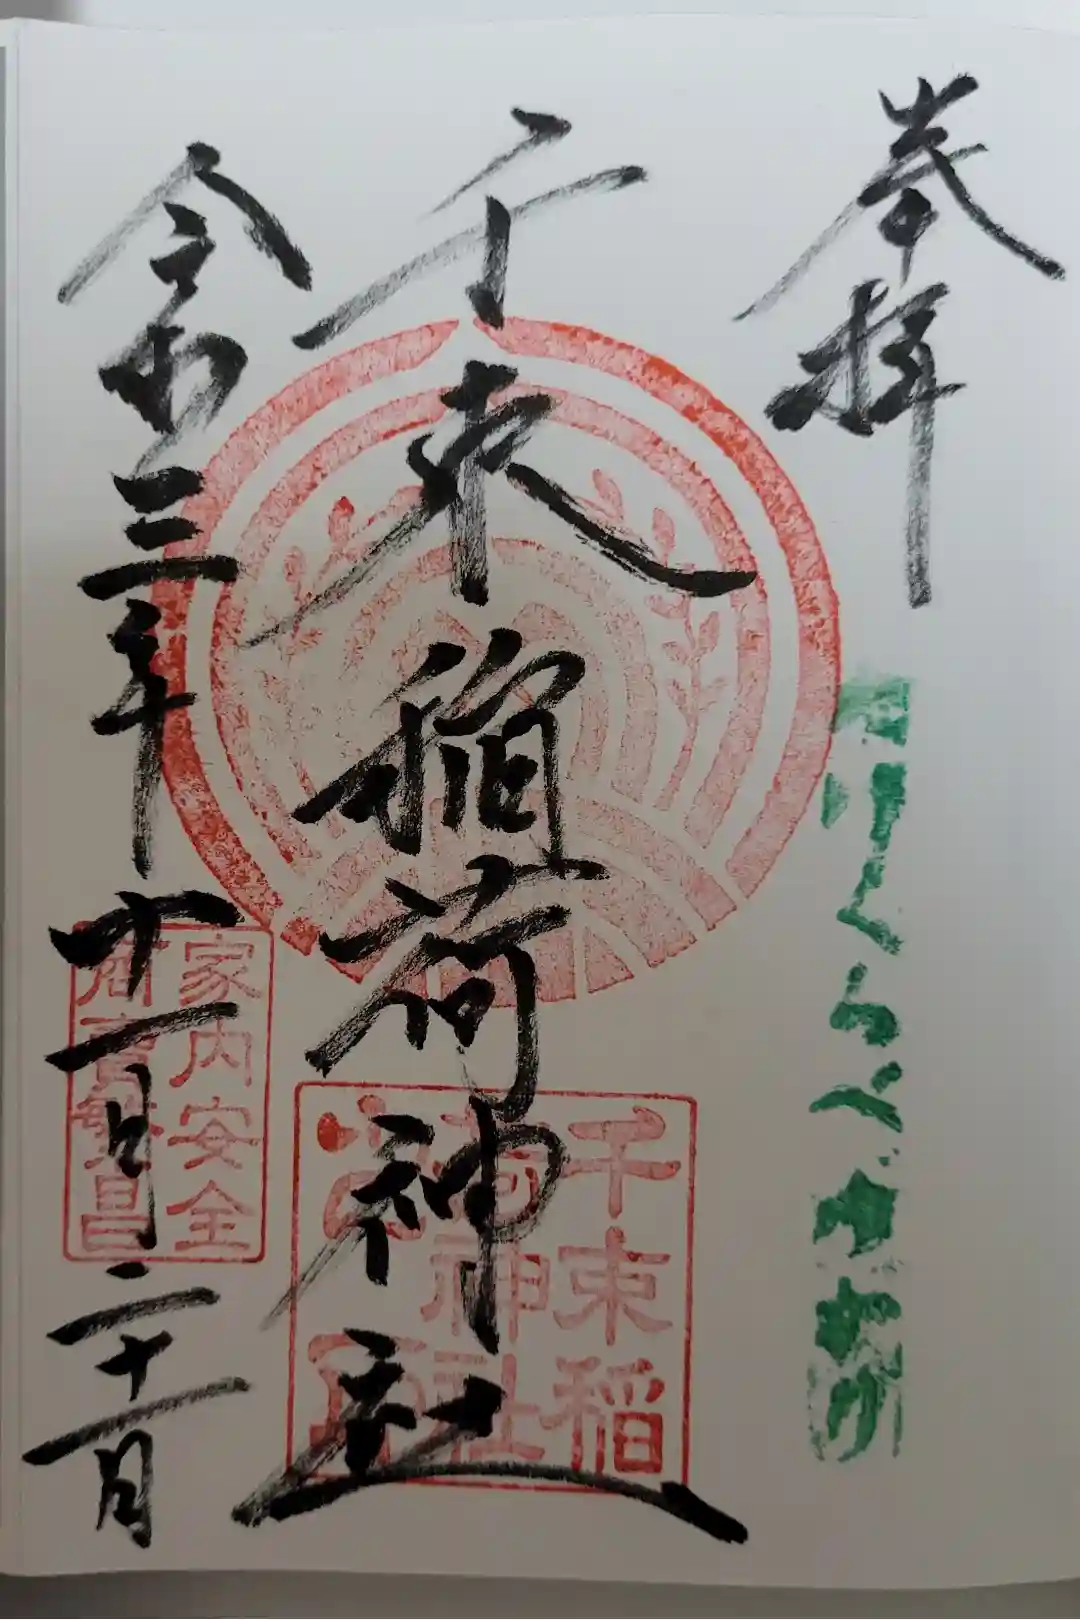 奉拝
たけくらべ
千束稲荷神社
千束稲
荷神社
令和三年十一月二十一日
家内安全
商売繁昌